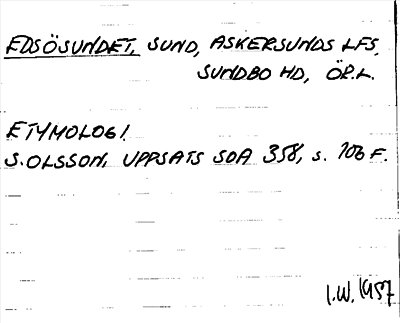 EDSÖSUNDET, SUND, ASKERSUNDS LFS,
SUNDBO HD, ÖR.L.
ETYMOLOGI.
S.OLSSON, UPPSATS SOA 358, S. 106 F.
I.W. 1957